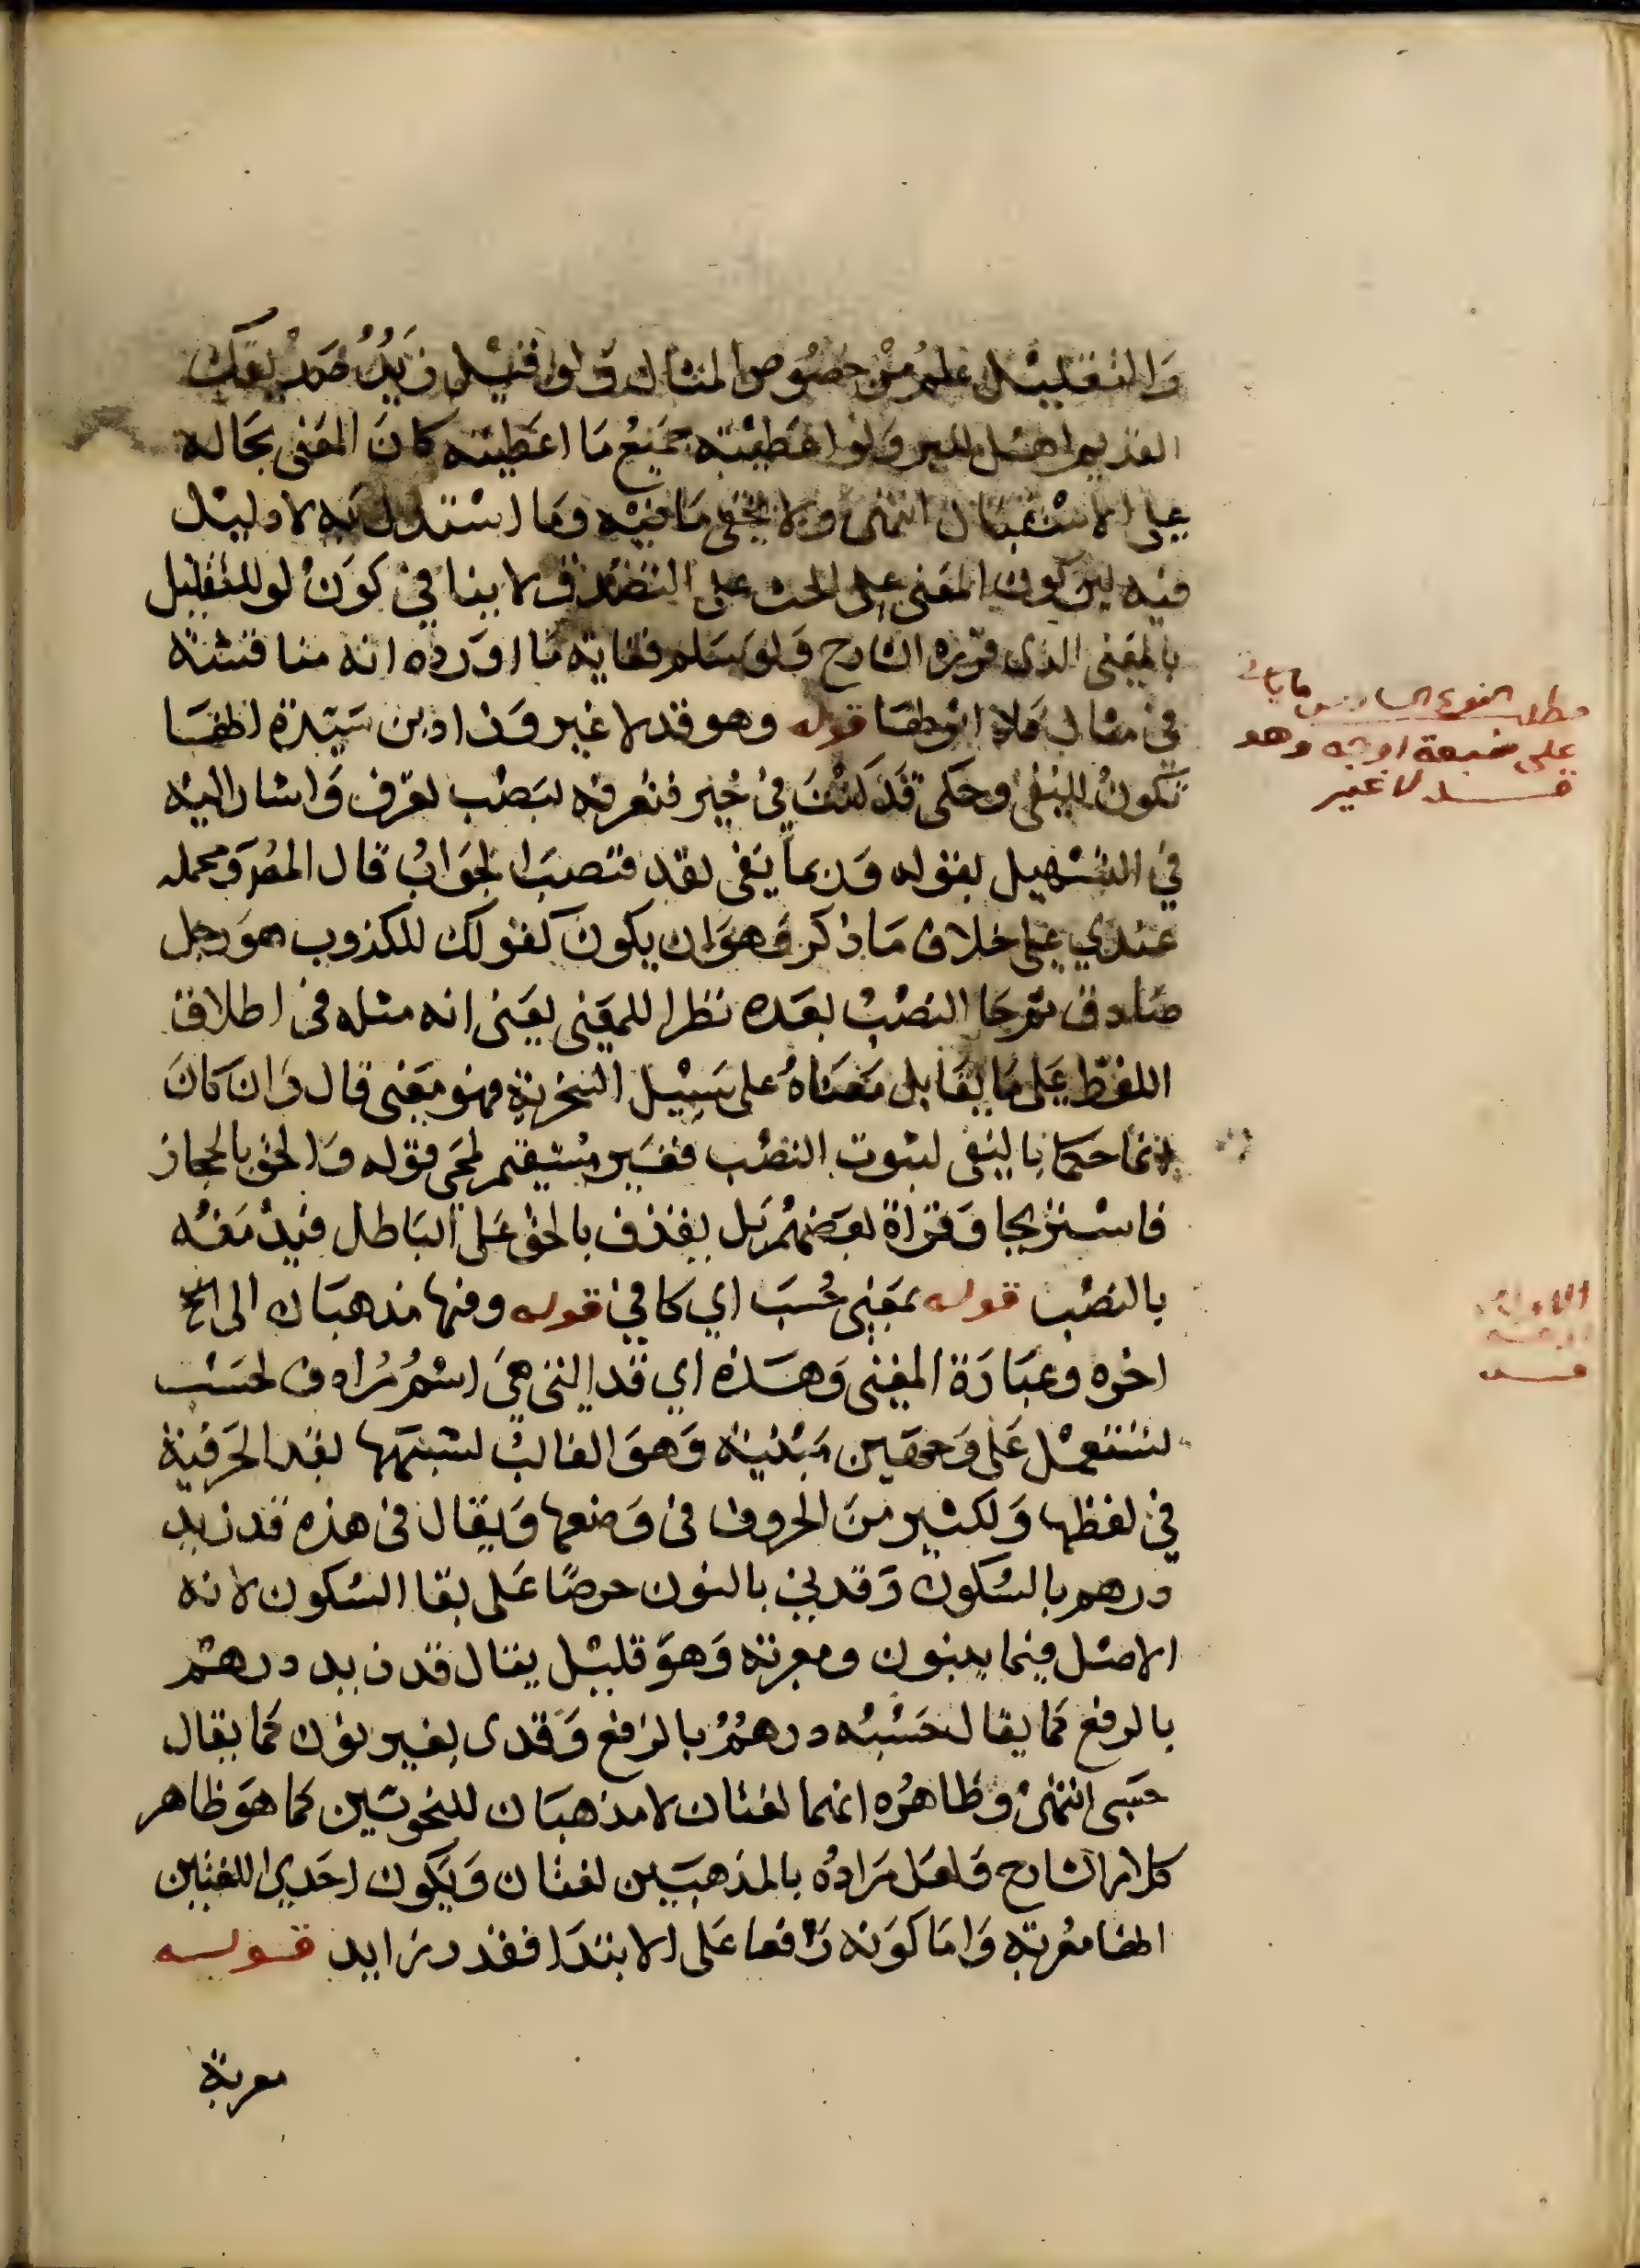 والتقليل علم من خصوص المثال ولو قيل زيد
ولو اعطيته جميع ما اعطيته كان المعنى بحاله
على الاستقبال انتهى ولا يخفى ما فيه وما استدل به لا دليل
فيه لان كون المعنى على الحث على التصدق لا ينافي كون لو للتقليل
بالمعنى الذى قرره الشارح ولو سلم فغاية ما اورده انه مناقشة
في مثال قوله وهو قد لا غير وزاد ابن سيدة ايضا
تكون للنفي وحكى قد كنت في خير فتعرفه بنصب تعرف واشار اليه
في التسهيل بقوله وربما ينفى بقد فتصب الجواب قال المص ومحمله
عندي على خلاف ما ذكر وهو ان يكون كقولك للكذوب هو رجل
صادق ثم جا النصب بعده نظرا للمعنى يعنى انه مثله فى اطلاق
اللفظ على ما يقابل معناه على سبيل السخرية فهو معنى قال وان كان
انما حكما بالنفى لثبوت النصب فغير مستقيم لمجى قوله والحق بالحجاز
فاستريحا وقراة بعضهم بل نقذف بالحق على الباطل فيدمغه
بالنصب قوله بمعنى حسب اي كافي قوله وفيها مذهبان الى الخ
اخره وعبارة المغنى وهذه اي قد التى هي اسم مرادف لحسب
تستعمل على وجهين مبنية وهو الغالب لشبهها بقد الحرفية
في لفظها ولكثير من الحروف فى وضعها ويقال فى هذه قد زيد
درهم بالسكون وقدني بالنون حرصا على بقا السكون لانه
الاصل فيما يبنون ومعربة وهو قليل يقال قد زيد درهم
بالرفع كما يقال حسبه درهم بالرفع وقدى بغير نون كما يقال
حسبى انتهى وظاهره انهما لغتان لا مذهبان للنحويين كما هو ظاهر
كلام الشارح ولعل مراده بالمذهبين لغتان ويكون احدي اللغتين
ايضا معربة واما كونه رافعا على الابتدا فقدر زايد قوله
معربة
مطلب النوع السادس ما ياتي
على سبعة اوجه وهو
قد لا غير